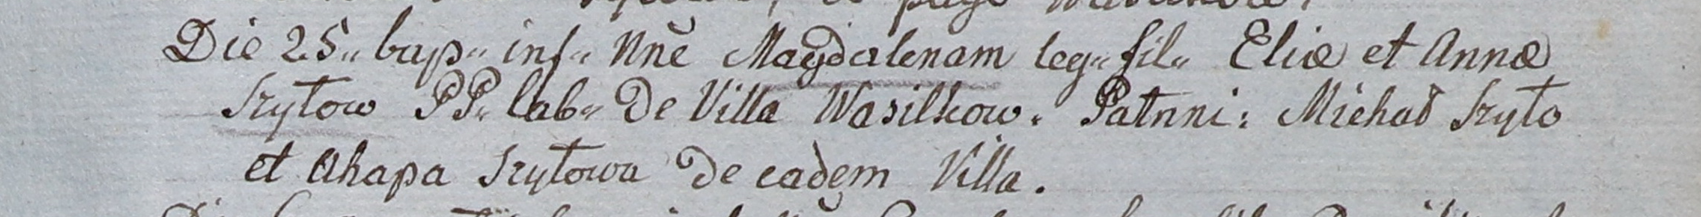 Die 25„ bap„ inf„ Nne Magdalenam leg„ fil„ Eliæ et Annæ
Szyłow PP„ lab„ De Villa Wasilkow. Patnni: Michał Szyło
et Ahapa Szyłowa De eadem Villa.